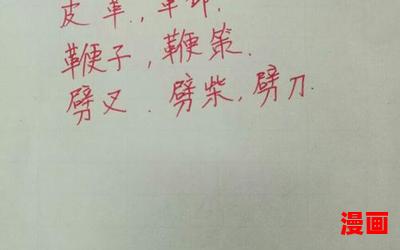 皮革，革命.
鞭子，鞭策.
劈叉．劈柴，劈刀.
漫画